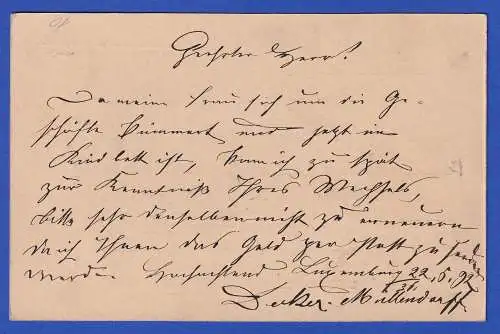 Geehrter Herr!
Da meine Frau sich um die Ge-
schäfte kümmert und jetzt im
Kindbett ist, kam ich zu spät
zur Kenntniß Ihres Wechsels,
bitte sehr denselben nicht zu erneuern
da ich Ihnen das Geld per Post zu senden
werde. Hochachtend Luxemburg 22.6.97
Decker-Müllendorff